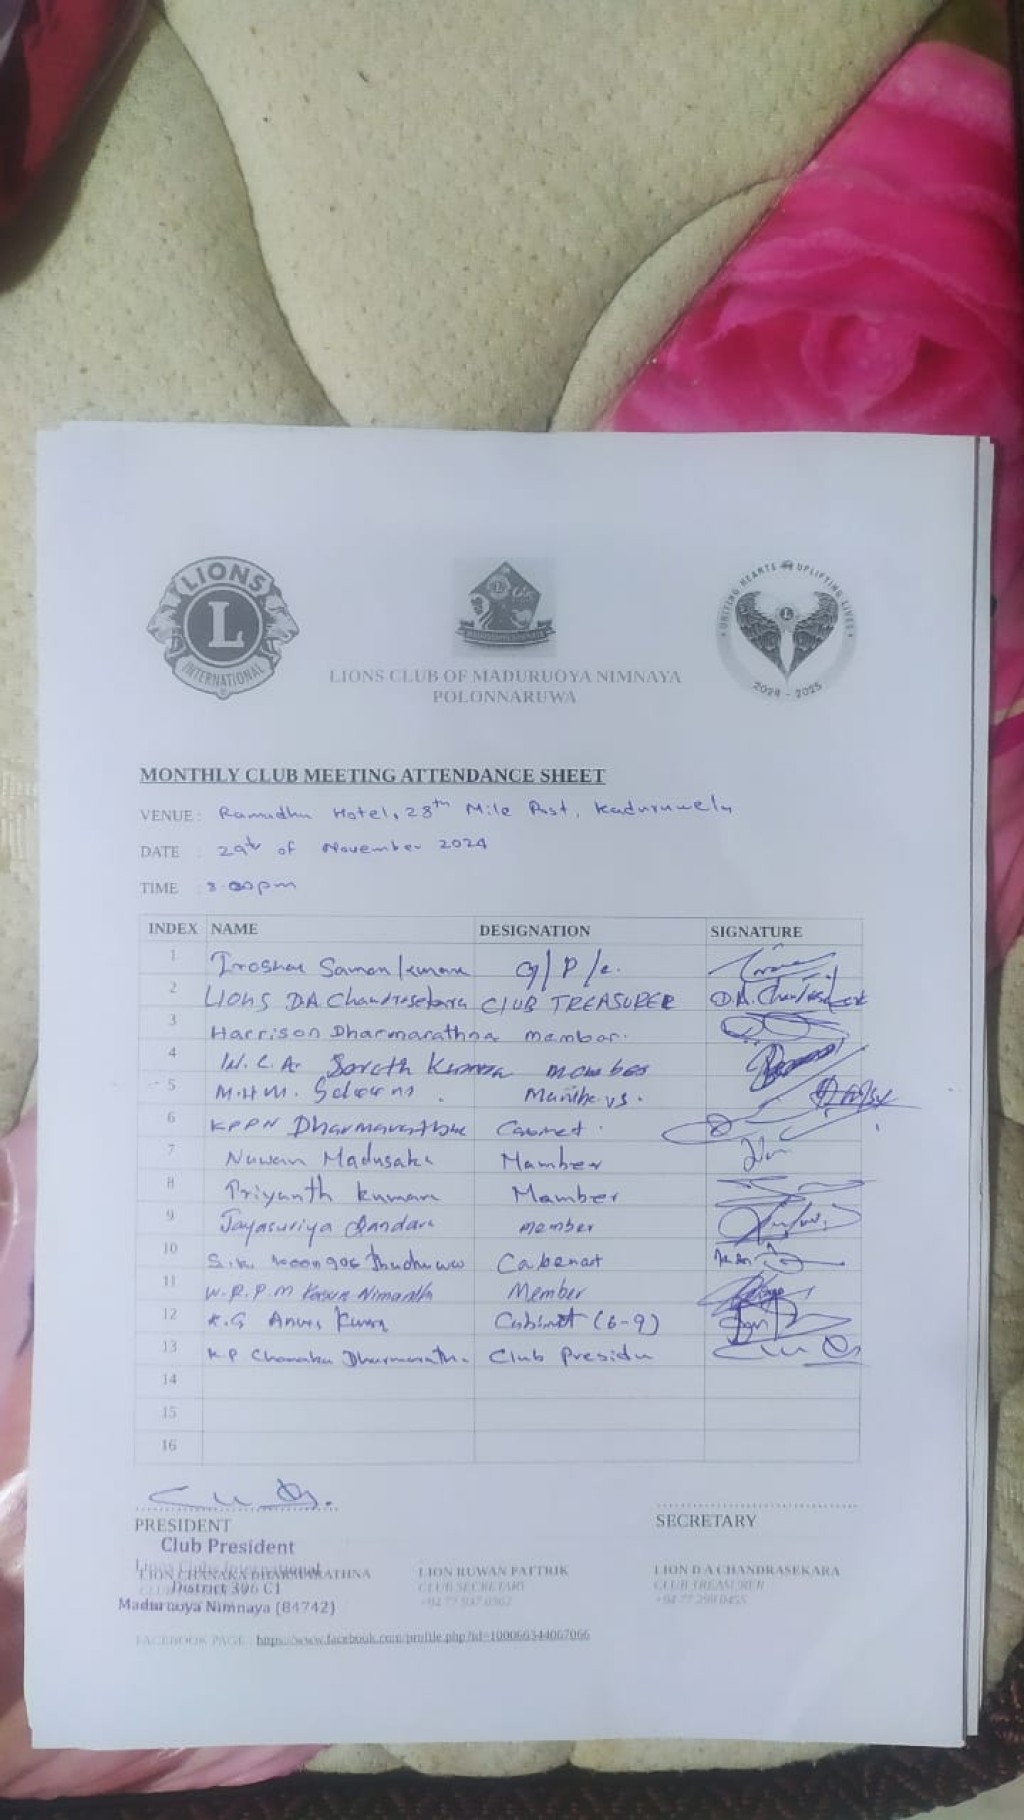 LIONS
L
INTERNATIONAL
UNITING HEARTS UPLIFTING LIVES
2024 - 2025
LIONS CLUB OF MADURUOYA NIMNAYA
POLONNARUWA
MONTHLY CLUB MEETING ATTENDANCE SHEET
VENUE : Ramadhu Hotel, 28th Mile Post, Kaduruwela
DATE : 29th of November 2024
TIME : 8.00pm
INDEX NAME DESIGNATION SIGNATURE
1 Iroshan Saman kumara
2 Lions D.A. Chandrasekara CLUB TREASURER D.A. Chandrasekara
3 Harrison Dharmarathna member.
4 W.C.A. Sarath Kumara member
5 M.H.M.
6 KPPN Dharmarathne Cabinet.
7 Nuwan Madusaka Mamber
8 Priyanth kumara Mamber
9 Jayasuriya Bandara member
10 Cabenat
11 W.R.P.M Kasun Nimantha Member
12 K.G Cabinet (6-9)
13 K P Chanaka Dharmarathna Club Presidu
14
15
16
PRESIDENT SECRETARY
Club President
Lions Clubs International
LION CHANAKA DHARMARATHNA LION RUWAN PATTRIK LION D A CHANDRASEKARA
District 306 C1 CLUB SECRETARY CLUB TREASURER
Maduruoya Nimnaya (84742) +94 77 937 0362 +94 77 299 0455
FACEBOOK PAGE : https://www.facebook.com/profile.php?id=100066344067066